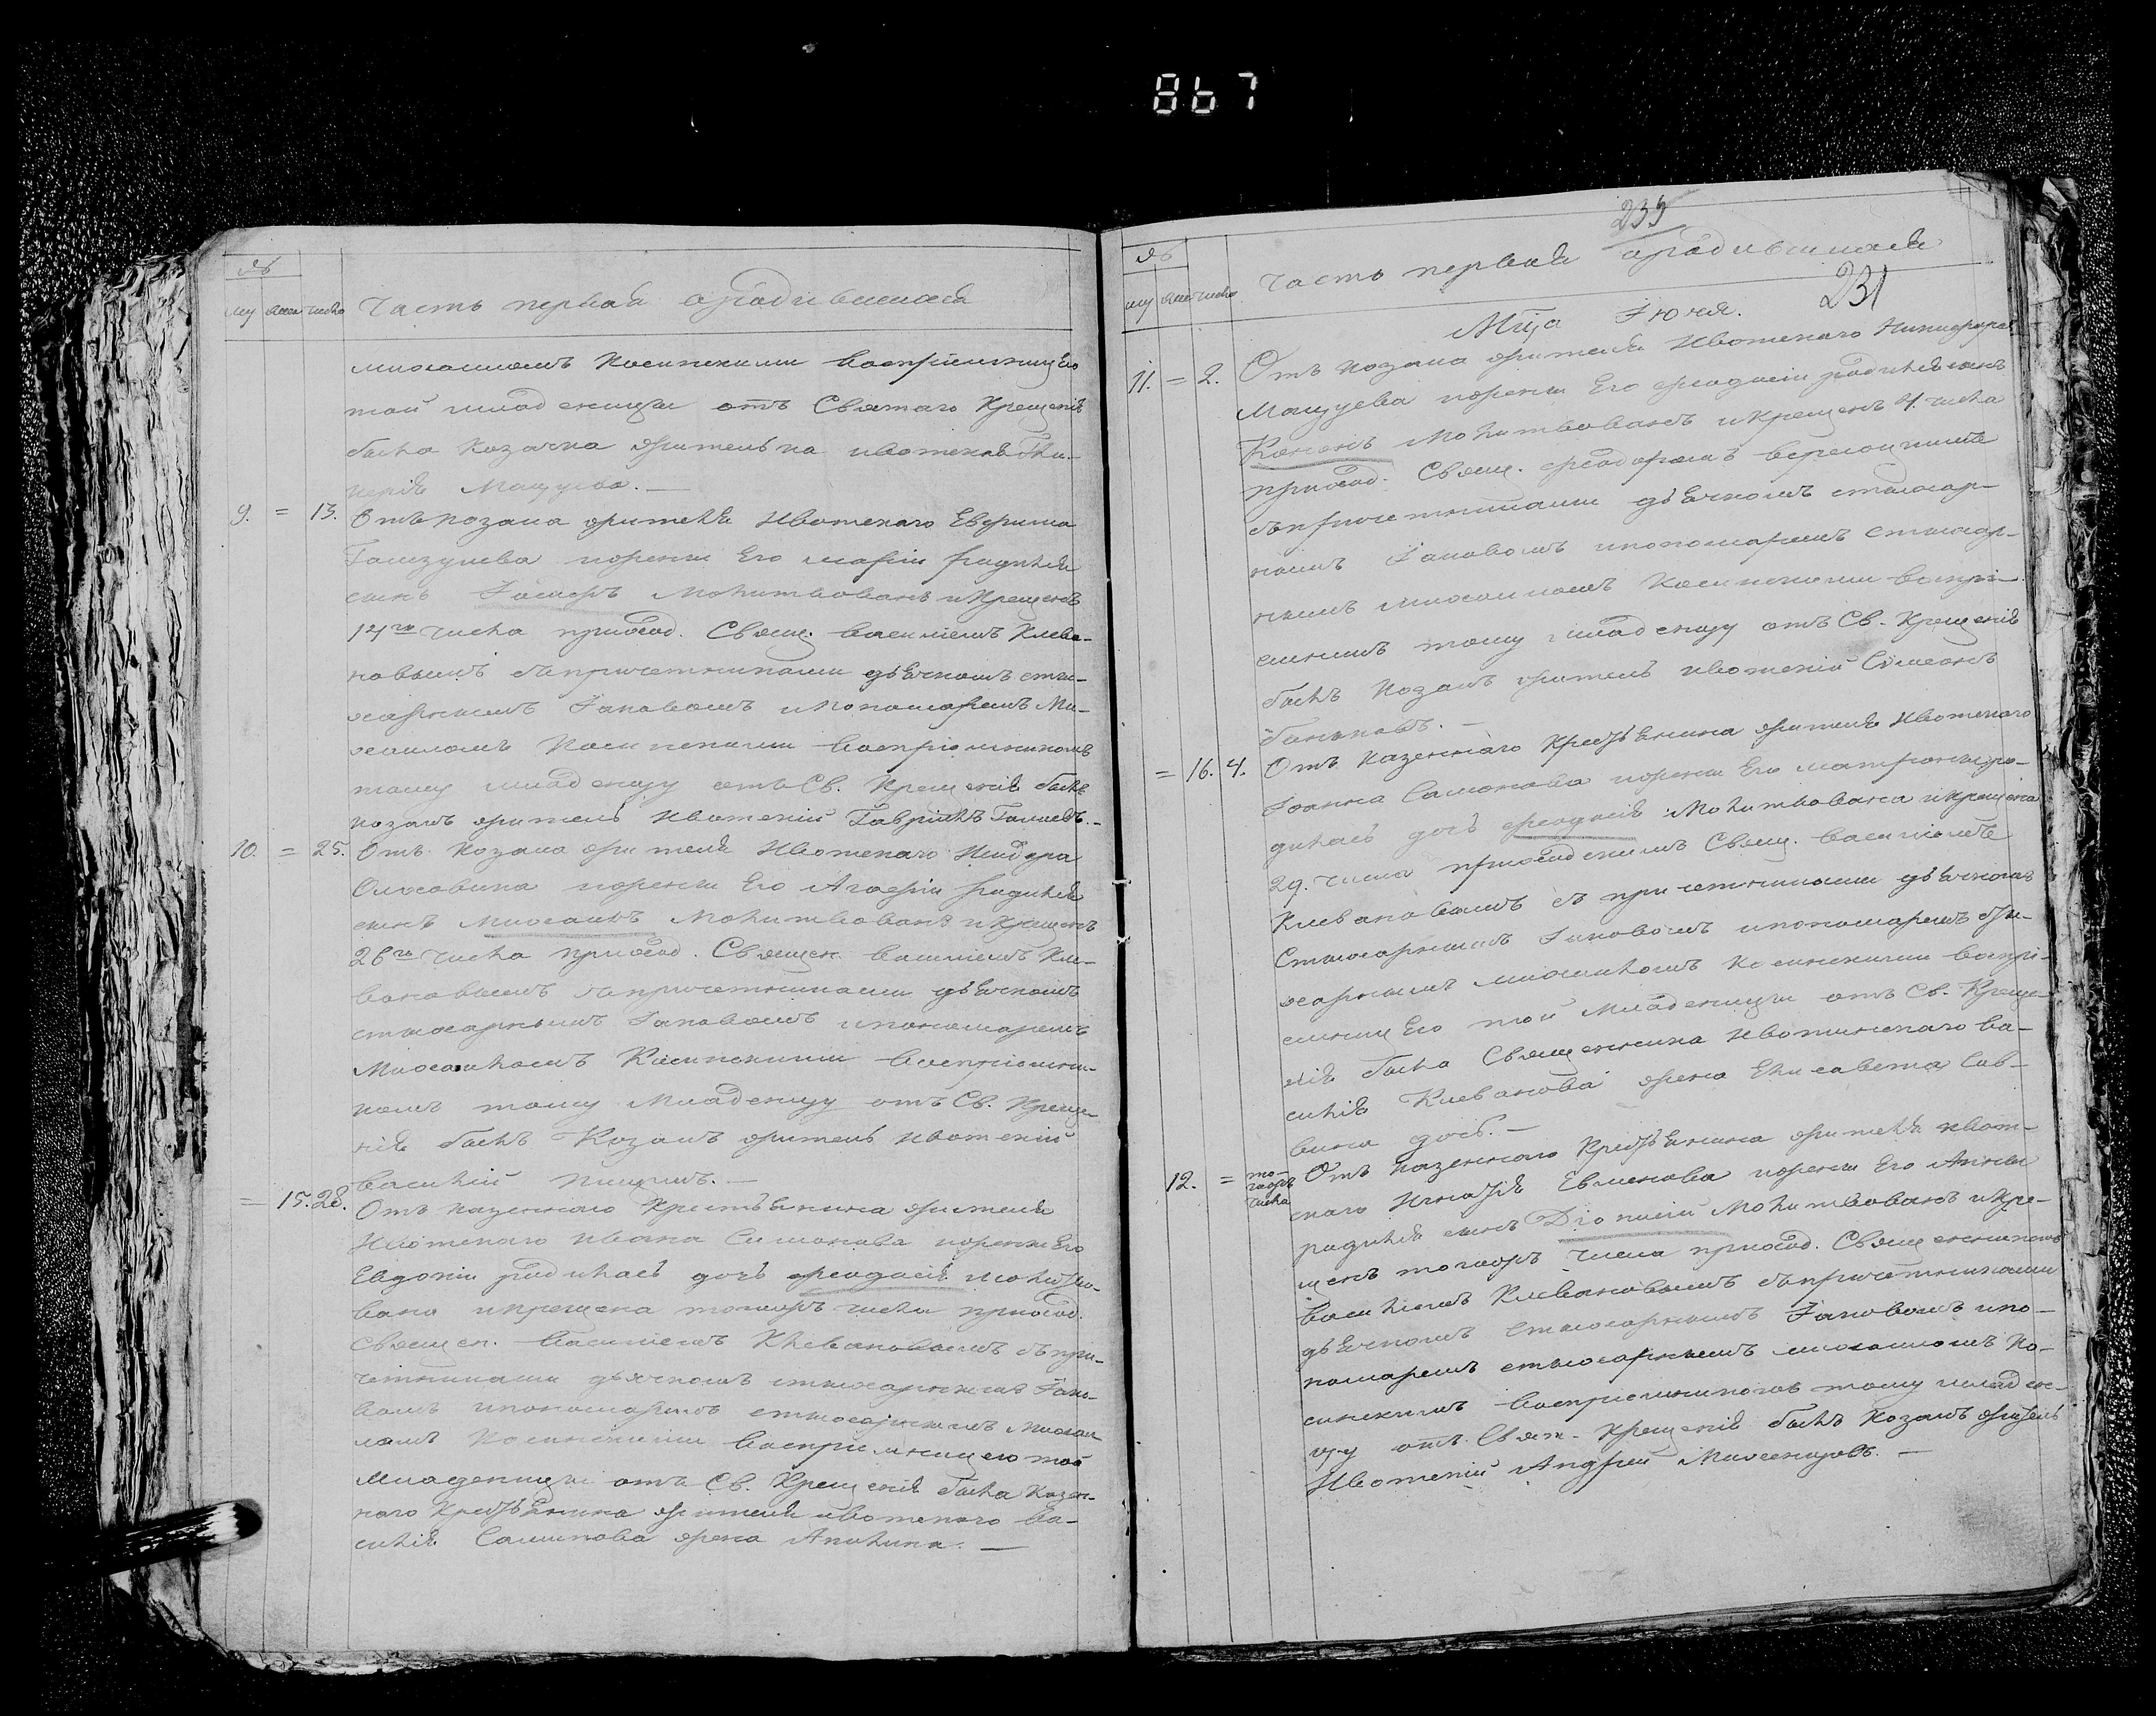 867
№
му жен число Часть первая о родившихся
михаиломъ Косинскими воспріемницею
той младеницы отъ Святаго Крещенія
была козачка жителька ивотская
Мацуева. —
9. = 13. Отъ козака жителя Ивотскаго Ефима
жены Его Марiи родился
сынъ Молитвованъ и Крещенъ
14го числа приход. Свящ. Василіемъ Клева-
новымъ съ причетниками дьячкомъ сти-
харнымъ Іаковомъ и пономаремъ Ми-
хаиломъ Косинскими Воспріемникомъ
тому младенцу отъ Св. Крещенія былъ
козакъ житель Ивотскій Гавріилъ
10. = 25. Отъ козака жителя Ивотскаго
жены Его Агафіи родился
сынъ Михаилъ Молитвованъ и Крещенъ
26го числа приход. Священ. Василіемъ Кле-
вановымъ съ причетниками дьячкомъ
стихарнымъ Іаковомъ и пономаремъ
Михаиломъ Косинскими Воспріемни-
комъ тому Младенцу отъ Св. Креще-
нія былъ Козакъ житель Ивотскій
Василій
= 15. 28. Отъ казеннаго Крестьянина жителя
Ивотскаго Ивана Симонова жены Его
Евдокіи родилась дочь Феодосія молитво-
вана и крещена тогожъ числа приход.
Священ. Василіемъ Клевановымъ съ при-
четниками дьячкомъ стихарнымъ Іако-
вомъ и пономаремъ стихарнымъ Михаи-
ломъ Косинскими Воспріемницею той
Младеницы отъ Св. Крещенія была Козен-
наго Крестьянина жителя ивотскаго Ва-
силія жена Акилина. —
239
№
му жен число Часть первая о родившихся
231
Мца Іюня.
11. = 2. Отъ козака жителя Ивотскаго Никифора
Мацуева жены Его Феодосіи родился сынъ
Кононъ Молитвованъ и Крещенъ 4. числа
приход. Свящ. Феодоромъ
съ причетниками дьячкомъ стихар-
нымъ Іаковомъ и пономаремъ стихар-
нымъ Михаиломъ Косинскими воспрі-
емникъ тому младенцу отъ Св. Крещенія
былъ козакъ житель ивотскій Симеонъ
= 16. 4. Отъ казеннаго Крестьянина жителя Ивотскаго
Іоанна Симонова жены Его Матроны ро-
дилась дочь Феодосія Молитвована и крещена
29. числа приходскимъ Свящ. Василіемъ
Клевановымъ съ причетниками дьячкомъ
Стихарнымъ Іаковомъ и пономаремъ сти-
харнымъ Михаиломъ Косинскими воспрі-
емницею той Младеницы отъ Св. Креще-
нія была Священника Ивотскаго Ва-
силія Клеванова жена Елисавета Сав-
вина дочь. —
12. = то-
гожъ
числа Отъ казеннаго Крестьянина жителя ивот-
скаго Игнатія жены Его Анны
родился сынъ Діонисій Молитвованъ и Кре-
щенъ тогожъ числа приход. Священникомъ
Василіемъ Клевановымъ съ причетниками
дьячкомъ Стихарнымъ Іаковомъ и по-
номаремъ стихарнымъ михаиломъ Ко-
синскимъ воспріемникомъ тому младен-
цу отъ Свят. Крещенія былъ Козакъ житель
Ивотскій Андрей —